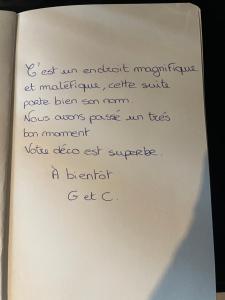 C'est un endroit magnifique
et maléfique, cette suite
porte bien son nom.
Nous avons passé un très
bon moment
Votre déco est superbe.
À bientôt
G et C.